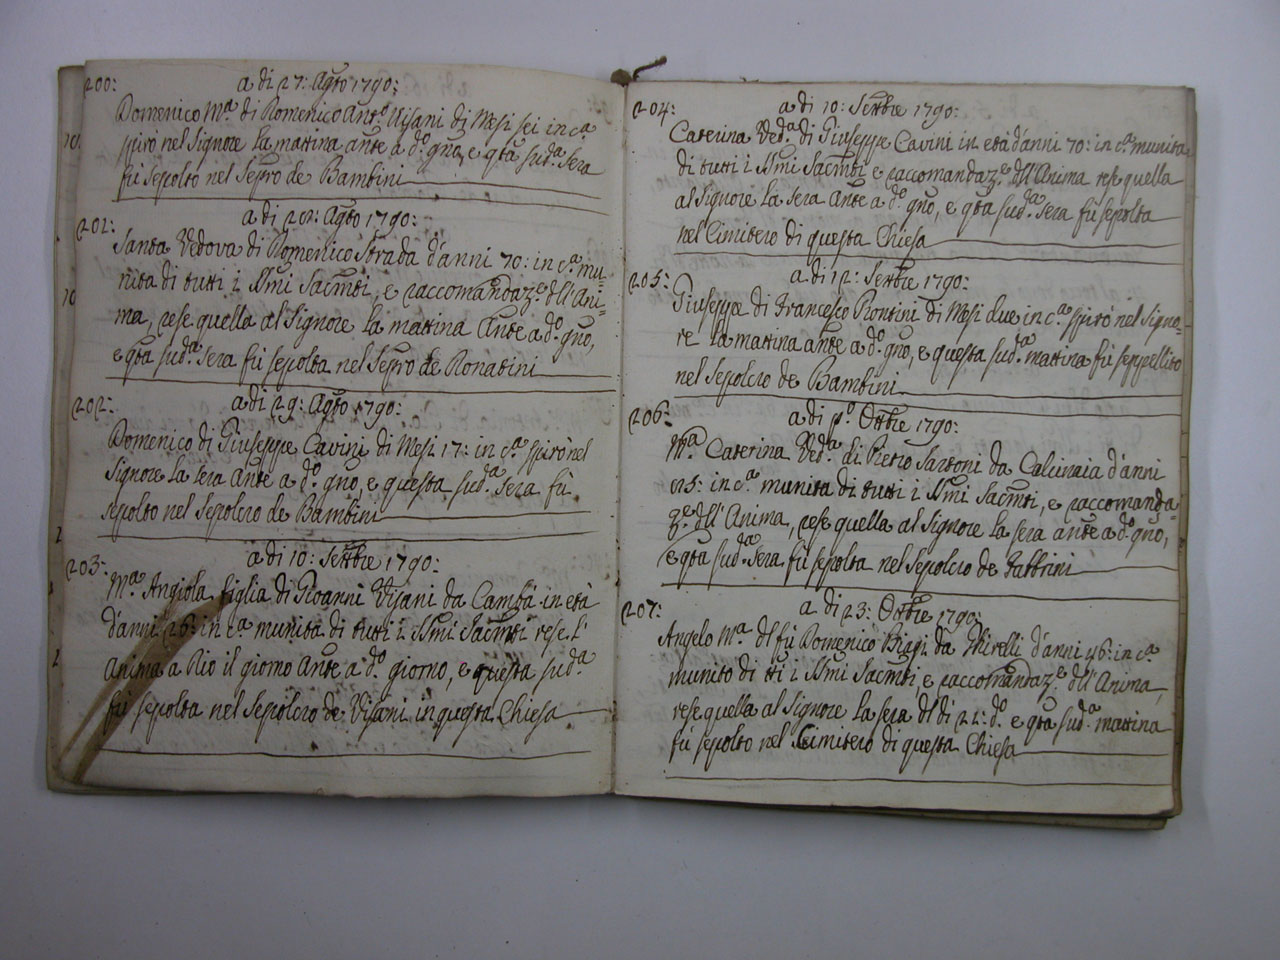 200: a di 27: Agto 1790:
Domenico Mª di Domenico Antº Visani di Mesi sei in cª
spirò nel Signore la mattina ante a dº gno, e qta sudª sera
fù sepolto nel Sepro de Bambini
201: a di 28: Agto 1790:
Santa Vedova di Domenico Strada d'anni 70: in cª mu-
nita di tutti i SSmi Sacmti, e raccomandazᵉ dll'Ani-
ma, rese quella al Signore la mattina ante a dº gno,
e qta sudª sera fù sepolta nel Sepro de Donatini
202: a di 29: Agto 1790:
Domenico di Giuseppe Cavini di Mesi 17: in cª spirò nel
Signore la sera ante a dº gno, e questa sudª sera fù
sepolto nel Sepolcro de Bambini
203: a di 10: Settbre 1790:
Mª Angiola figlia di Gioanni Visani da Cambá in età
d'anni 26: in cª munita di tutti i SSmi Sacmti rese l'
Anima a Dio il giorno ante a dº giorno, e questa sudª
fù sepolta nel Sepolcro de Visani in questa Chiesa
204: a di 10: Settbre 1790:
Caterina Vedª di Giuseppe Cavini in età d'anni 70: in cª munita
di tutti i SSmi Sacmti e raccomandazᵉ dll'Anima rese quella
al Signore la sera ante a dº gno, e qta sudª sera fù sepolta
nel Cimitero di questa Chiesa
205: a di 12: Settbre 1790:
Giuseppe di Francesco Rontini di Mesi due in cª spirò nel Signo-
re la mattina ante a dº gno, e questa sudª mattina fù seppellito
nel Sepolcro de Bambini
206: a di pº Ottbre 1790:
Mª Caterina Vedª di Pietro Sartoni da Calcinaia d'anni
85: in cª munita di tutti i SSmi Sacmti, e raccomanda-
zᵉ dll'Anima, rese quella al Signore la sera ante a dº gno,
e qta sudª sera fù sepolta nel Sepolcro de Fabbrini
207: a di 23: Ottbre 1790:
Angelo Mª dl fù Domenico Biagi da d'anni 46: in cª
munito di tti i SSmi Sacmti, e raccomandazᵉ dll'Anima,
rese quella al Signore la sera dl di 22: dº e qta sudª mattina
fù sepolto nel Cimitero di questa Chiesa